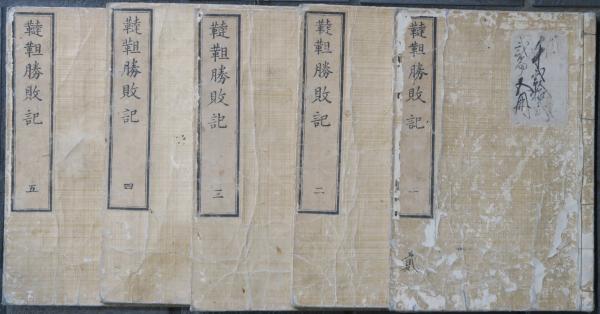 韃靼勝敗記 一
貳
韃靼勝敗記 二
韃靼勝敗記 三
韃靼勝敗記 四
韃靼勝敗記 五